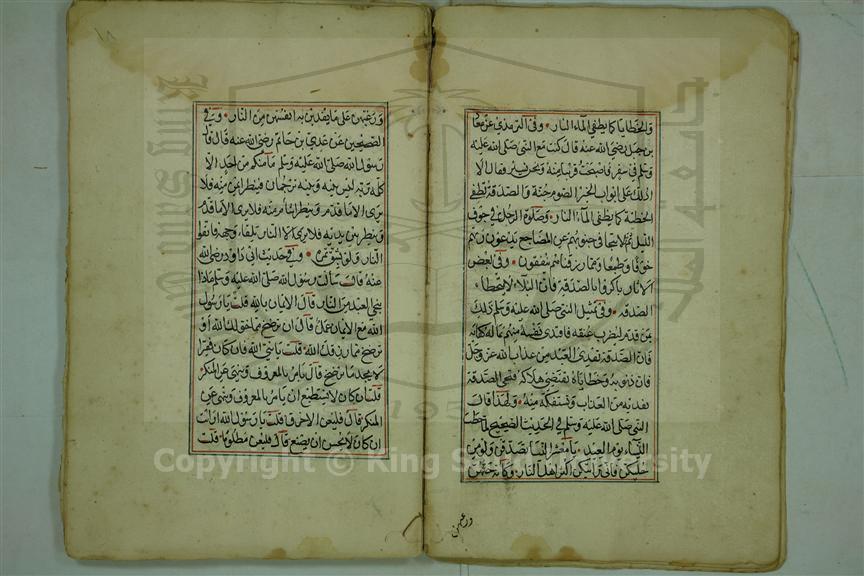 والخطايا كما يطفئ الماء النار وفي الترمذي عن معاذ
بن جبل رضي الله عنه قال كنت مع النبي صلى الله عليه
وسلم في سفر فاصبحت قريبا منه ونحن نسير فقال الا
ادلك على ابواب الخير الصوم جنة والصدقة تطفئ
الخطيئة كما يطفئ الماء النار وصلوة الرجل في جوف
الليل ثم تلا تتجافى جنوبهم عن المضاجع يدعون ربهم
خوفا وطمعا ومما رزقناهم ينفقون وفي بعض
الاثار باكروا بالصدقة فان البلاء لا يتخطاء
الصدقة وفي تمثيل النبي صلى الله عليه وسلم ذلك
بمن قدم ليضرب عنقه فافتدى نفسه منهم بماله كفاية
فان الصدقة تفدي العبد من عذاب الله عز وجل
فان ذنوبه وخطاياه تقتضي هلاكه فتجئ الصدقة
تفديه من العذاب وتستفكه منه ولهذا قال
النبي صلى الله عليه وسلم في الحديث الصحيح لما خطب
النساء يوم العيد يا معشر النسا تصدقن ولو من
حليكن فاني رايتكن اكثر اهل النار وكانه حثهن
ورغبهن
ورغبهن على ما يفدين به انفسهن من النار وفي
الصحيحين عن عدي بن حاتم رضي الله عنه قال قال
رسول الله صلى الله عليه وسلم ما منكم من احد الا
كلمه ربه ليس بينه وبينه ترجمان فينظر ايمن منه فلا
يرى الا ما قدم وينظر اشأم منه فلا يرى الا ما قدم
وينظر بين يديه فلا يرى الا النار تلقاء وجهه فاتقوا
النار ولو بشق تمرة وفي حديث ابي ذر رضي الله
عنه قال سألت رسول الله صلى الله عليه وسلم ماذا
ينجي العبد من النار قال الايمان بالله قلت يا رسول
الله مع الايمان عمل قال ان ترضخ مما خولك الله او
ترضخ مما رزقك الله قلت يا نبي الله فان كان فقيرا
لا يجد ما يرضخ قال يأمر بالمعروف وينهى عن المنكر
قلت ان كان لا يستطيع ان يأمر بالمعروف وينهى عن
المنكر قال فليعن الاخرق قلت يا رسول الله ارايت
ان كان لا يحسن ان يصنع قال فليعن مظلوما قلت
Copyright © King Saud University